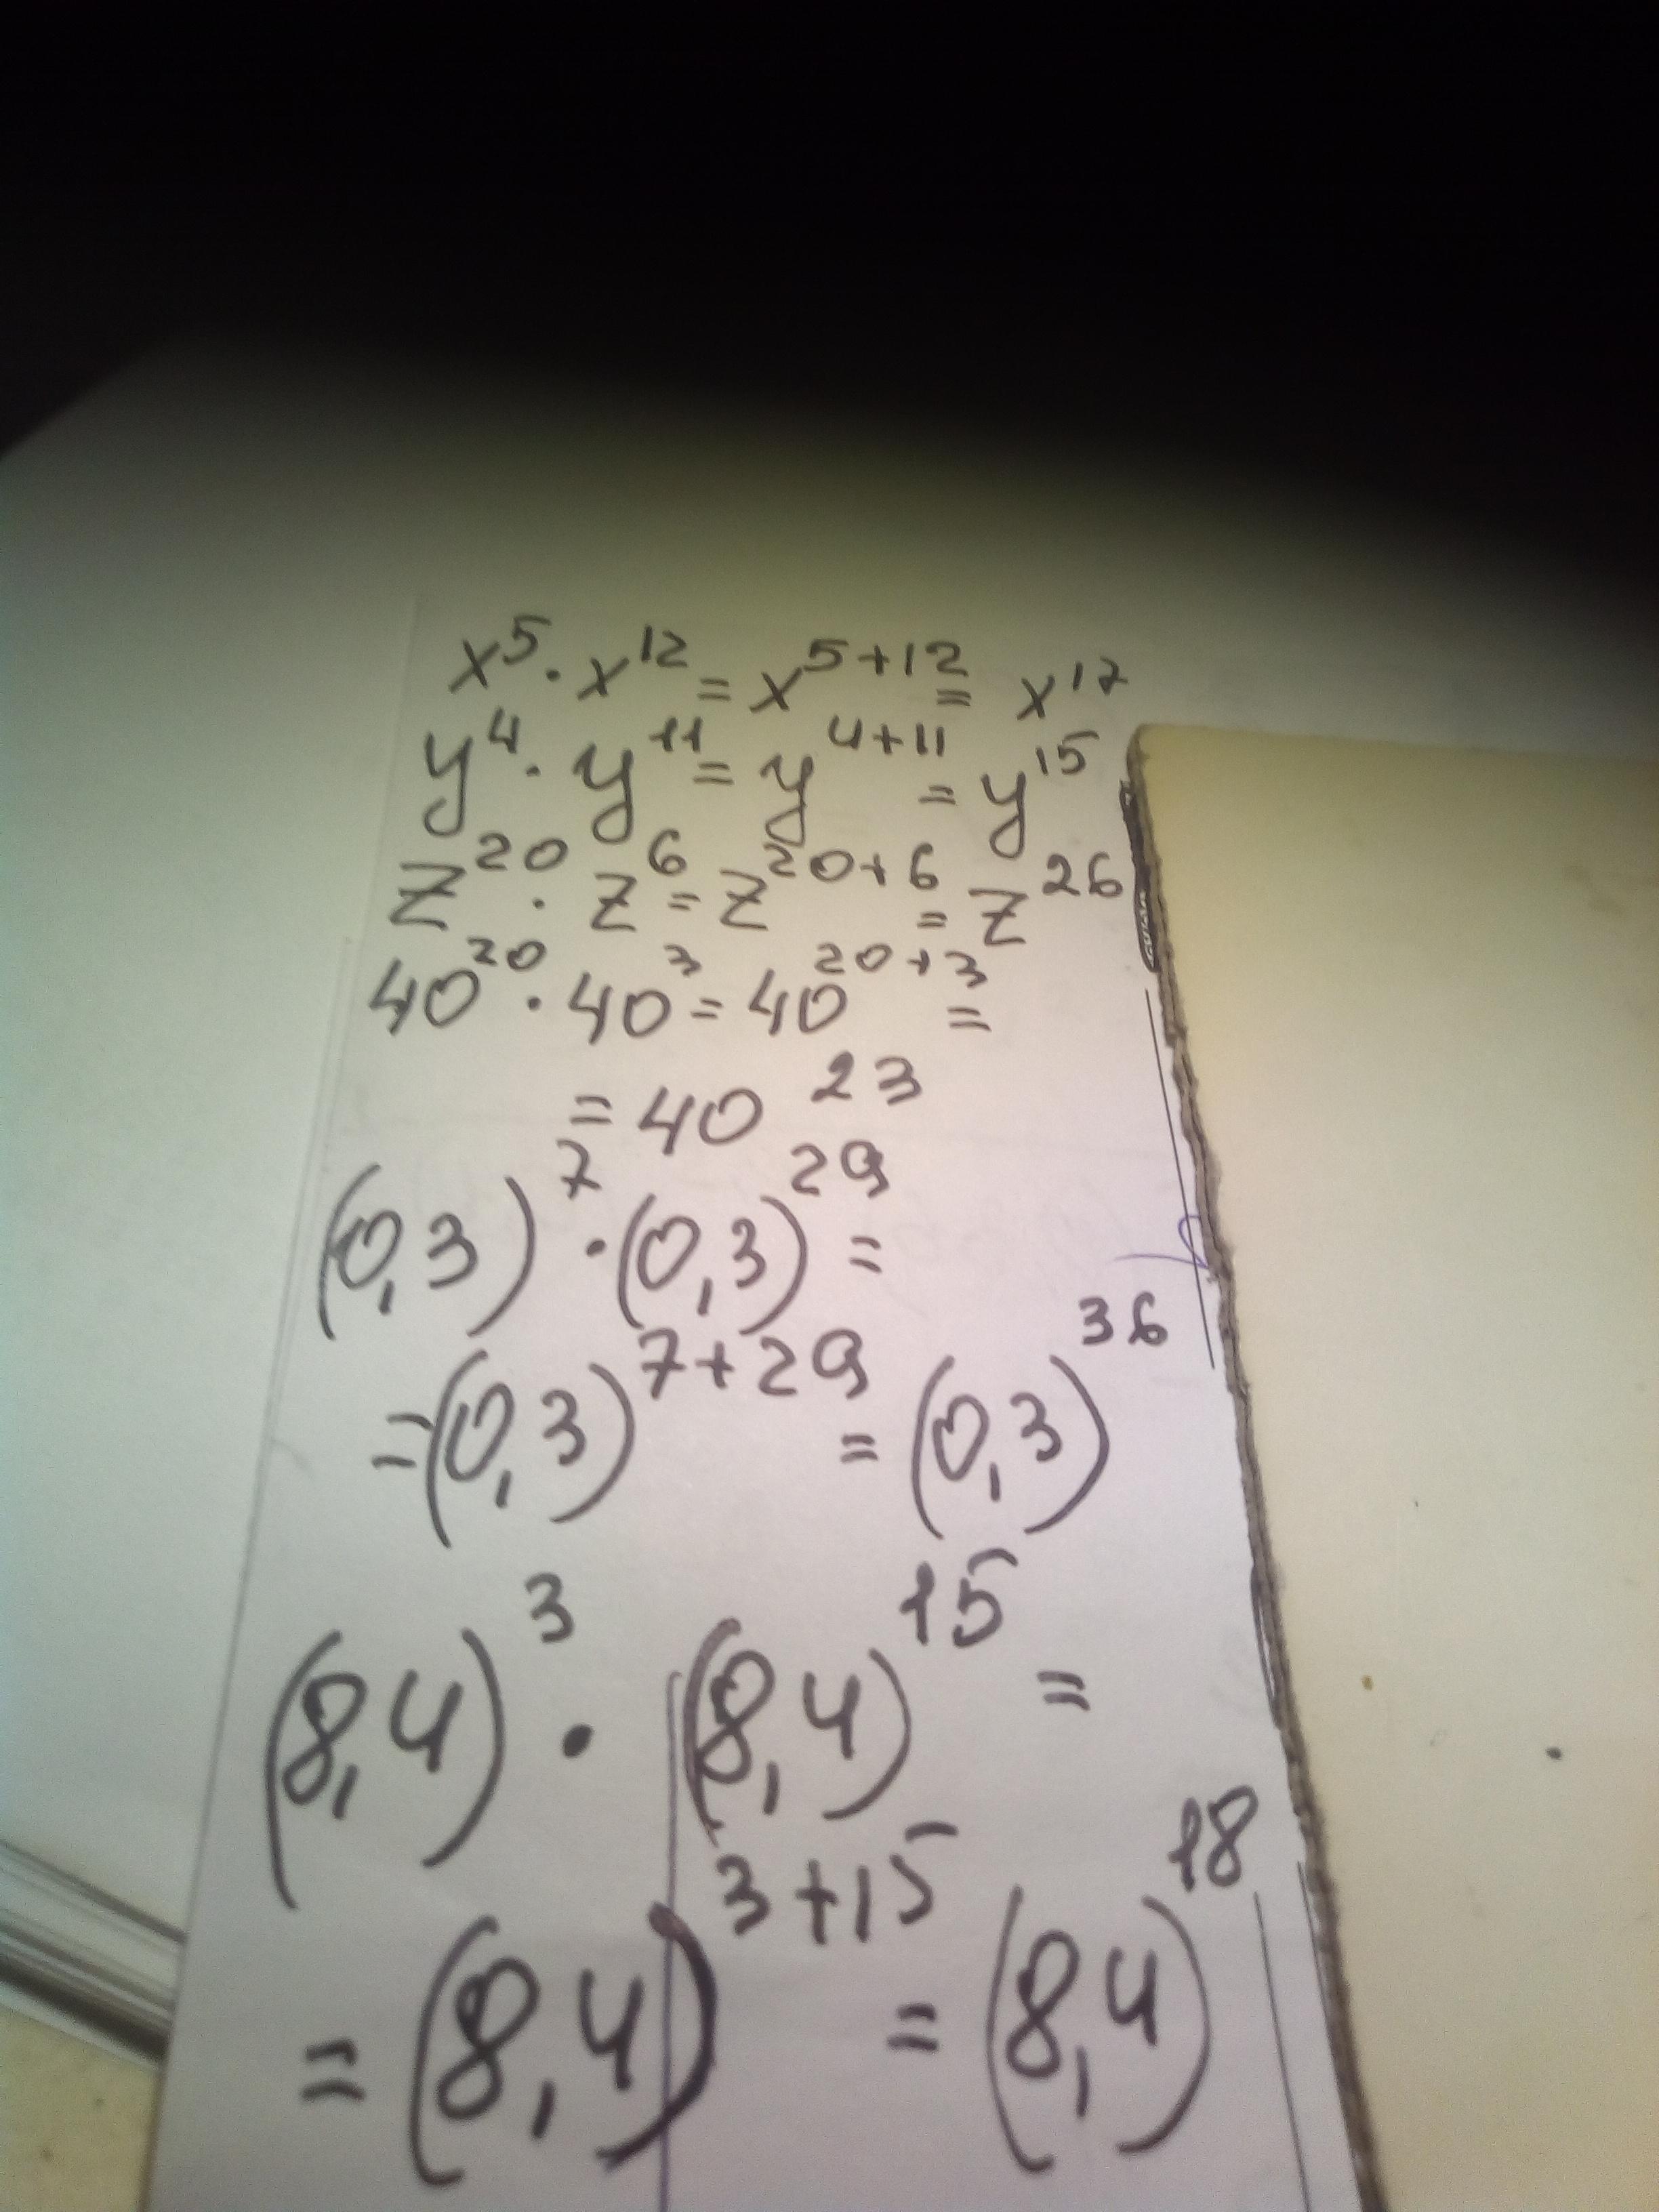 x⁵ · x¹² = x⁵⁺¹² = x¹⁷
y⁴ · y¹¹ = y⁴⁺¹¹ = y¹⁵
z²⁰ · z⁶ = z²⁰⁺⁶ = z²⁶
40²⁰ · 40³ = 40²⁰⁺³ =
= 40²³
(0,3)⁷ · (0,3)²⁹ =
= (0,3)⁷⁺²⁹ = (0,3)³⁶
(8,4)³ · (8,4)¹⁵ =
= (8,4)³⁺¹⁵ = (8,4)¹⁸